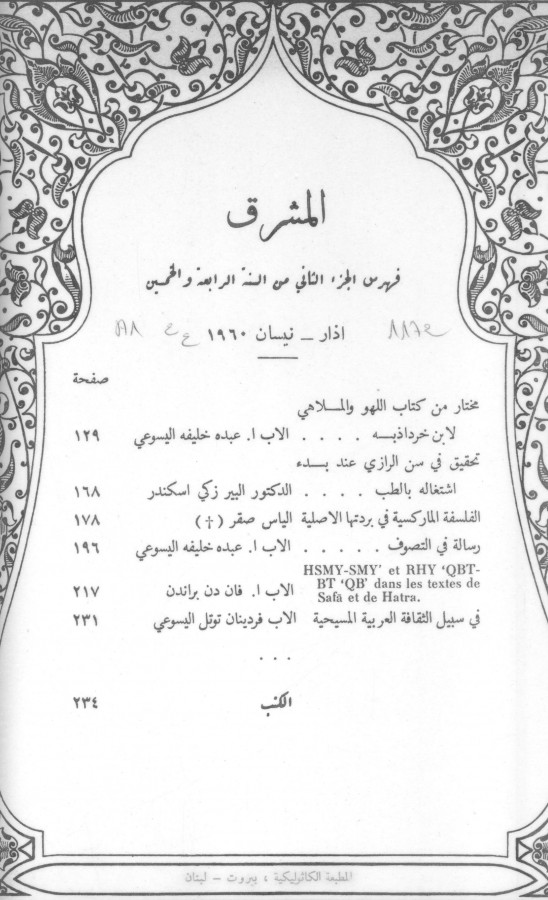 المشرق
فهرس الجزء الثاني من السنة الرابعة والخمسين
اذار – نيسان ١٩٦٠
صفحة
مختار من كتاب اللهو والملاهي
لابن خرداذبه . . . . الاب ا. عبده خليفه اليسوعي ١٢٩
تحقيق في سن الرازي عند بدء
اشتغاله بالطب . . . . الدكتور البير زكي اسكندر ١٦٨
الفلسفة الماركسية في بردتها الاصلية الياس صقر (†) ١٧٨
رسالة في التصوف . . . . . الاب ا. عبده خليفه اليسوعي ١٩٦
HSMY-SMY' et RHY 'QBT-
BT 'QB' dans les textes de
Safā et de Hatra. الاب ا. فان دن براندن ٢١٧
في سبيل الثقافة العربية المسيحية الاب فردينان توتل اليسوعي ٢٣١
. . .
الكتب ٢٣٤
المطبعة الكاثوليكية ، بيروت – لبنان